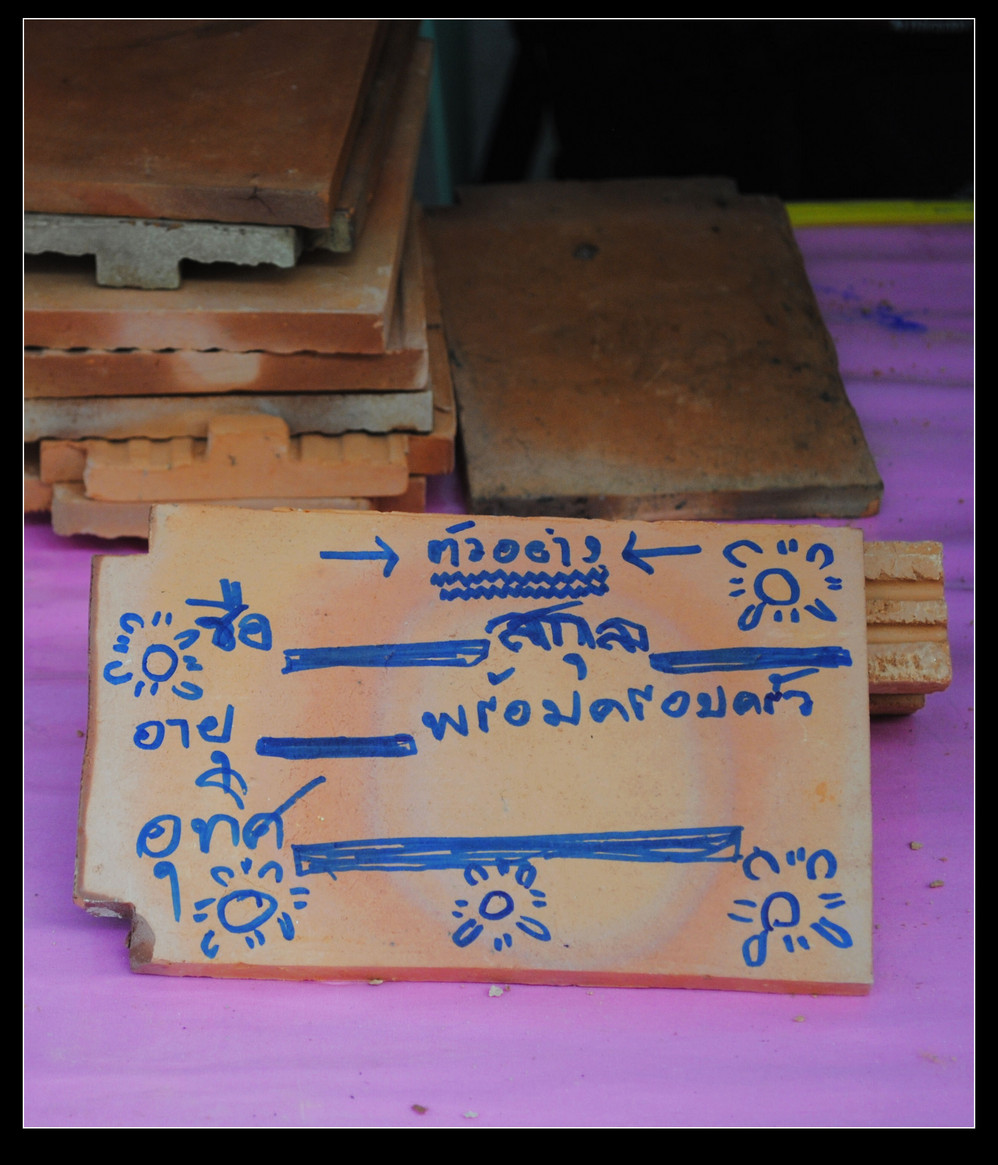 ตัวอย่าง
ชื่อ สกุล
อายุ พร้อมครอบครัว
อุทิศ